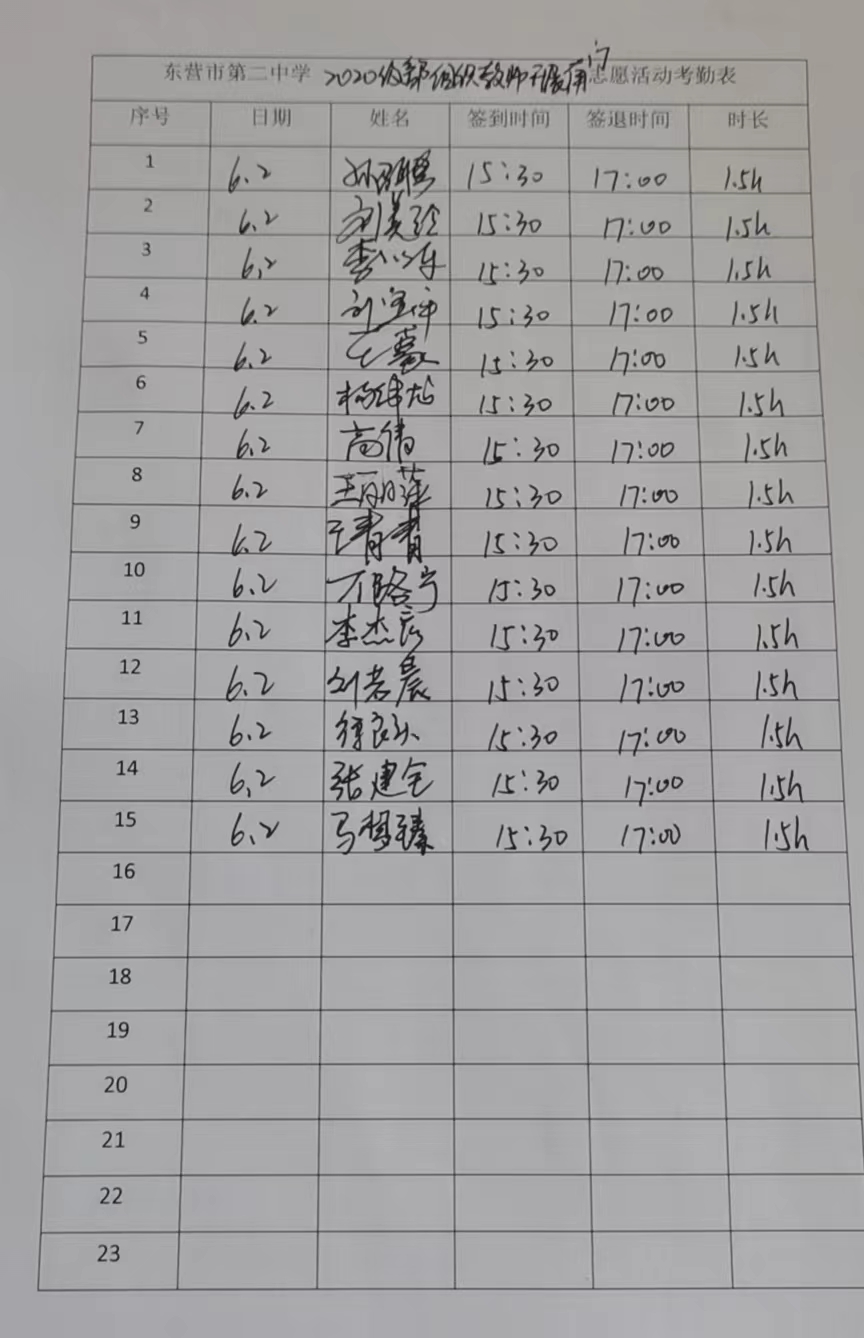 东营市第二中学 2020级部组织教师开展 志愿活动考勤表
序号 日期 姓名 签到时间 签退时间 时长
1 6.2 15:30 17:00 1.5h
2 6.2 15:30 17:00 1.5h
3 6.2 15:30 17:00 1.5h
4 6.2 15:30 17:00 1.5h
5 6.2 15:30 17:00 1.5h
6 6.2 15:30 17:00 1.5h
7 6.2 高倩 15:30 17:00 1.5h
8 6.2 王丽萍 15:30 17:00 1.5h
9 6.2 王青青 15:30 17:00 1.5h
10 6.2 15:30 17:00 1.5h
11 6.2 15:30 17:00 1.5h
12 6.2 15:30 17:00 1.5h
13 6.2 15:30 17:00 1.5h
14 6.2 张建全 15:30 17:00 1.5h
15 6.2 马梦臻 15:30 17:00 1.5h
16
17
18
19
20
21
22
23